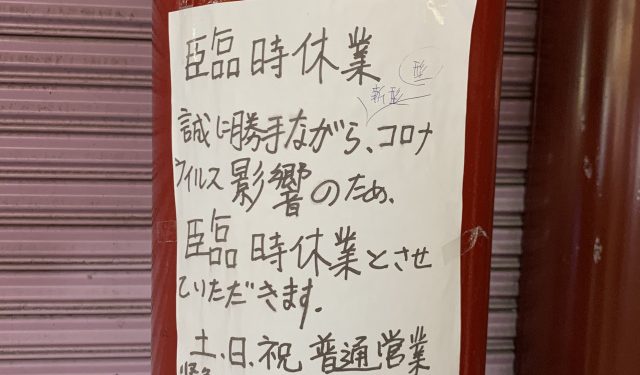 臨時休業
形
新形
誠に勝手ながら、コロナ
ウィルス影響のため、
臨時休業とさせ
ていただきます.
土、日、祝 普通営業